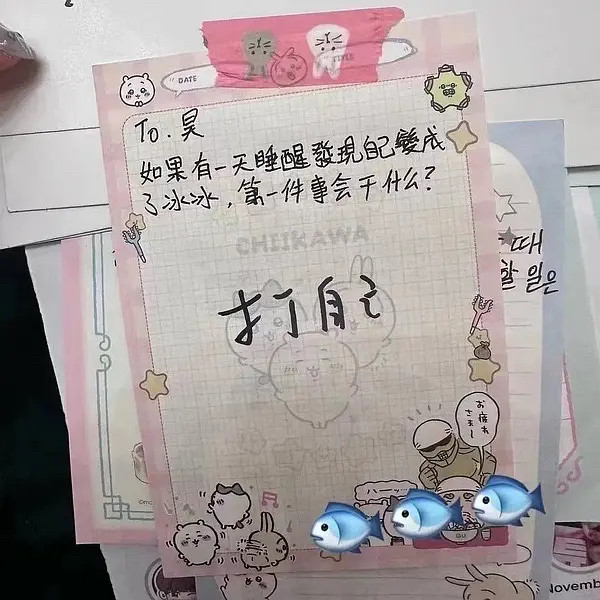 DATE
TITLE
To. 昊
如果有一天睡醒發現自己變成
了冰冰，第一件事会干什么?
CHIIKAWA
打自己
때
할 일은
お疲れ
さまー
Novemb